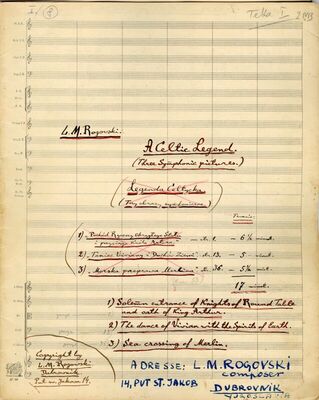 Teka I
L. M. Rogovski.
A Celtic Legend.
(Three Symphonic pictures.)
Legenda Celtycka
(Trzy obrazy symfoniczne.)
1) Pochód Rycerzy Okrągłego Stołu
i przysięga Króla Artura. - str. 1. - 6½ minut.
2) Taniec Viviany i Duchów Ziemi - str. 13. - 5 - minut.
3) Morska przeprawa Merlina - str. 36. - 5½ minut.
17 minut.
1) Solemn entrance of Knights of Round Table
and oath of King Arthur.
2) The dance of Vivian with the Spirits of Earth.
3) Sea crossing of Merlin.
Copyright by
L. M. Rogowski
Dubrovnik
Put sv. Jakova 14.
ADRESE: L. M. ROGOVSKI
composer
14, PUT ST. JAKOB
DUBROVNIK
JUGOSLAVIA